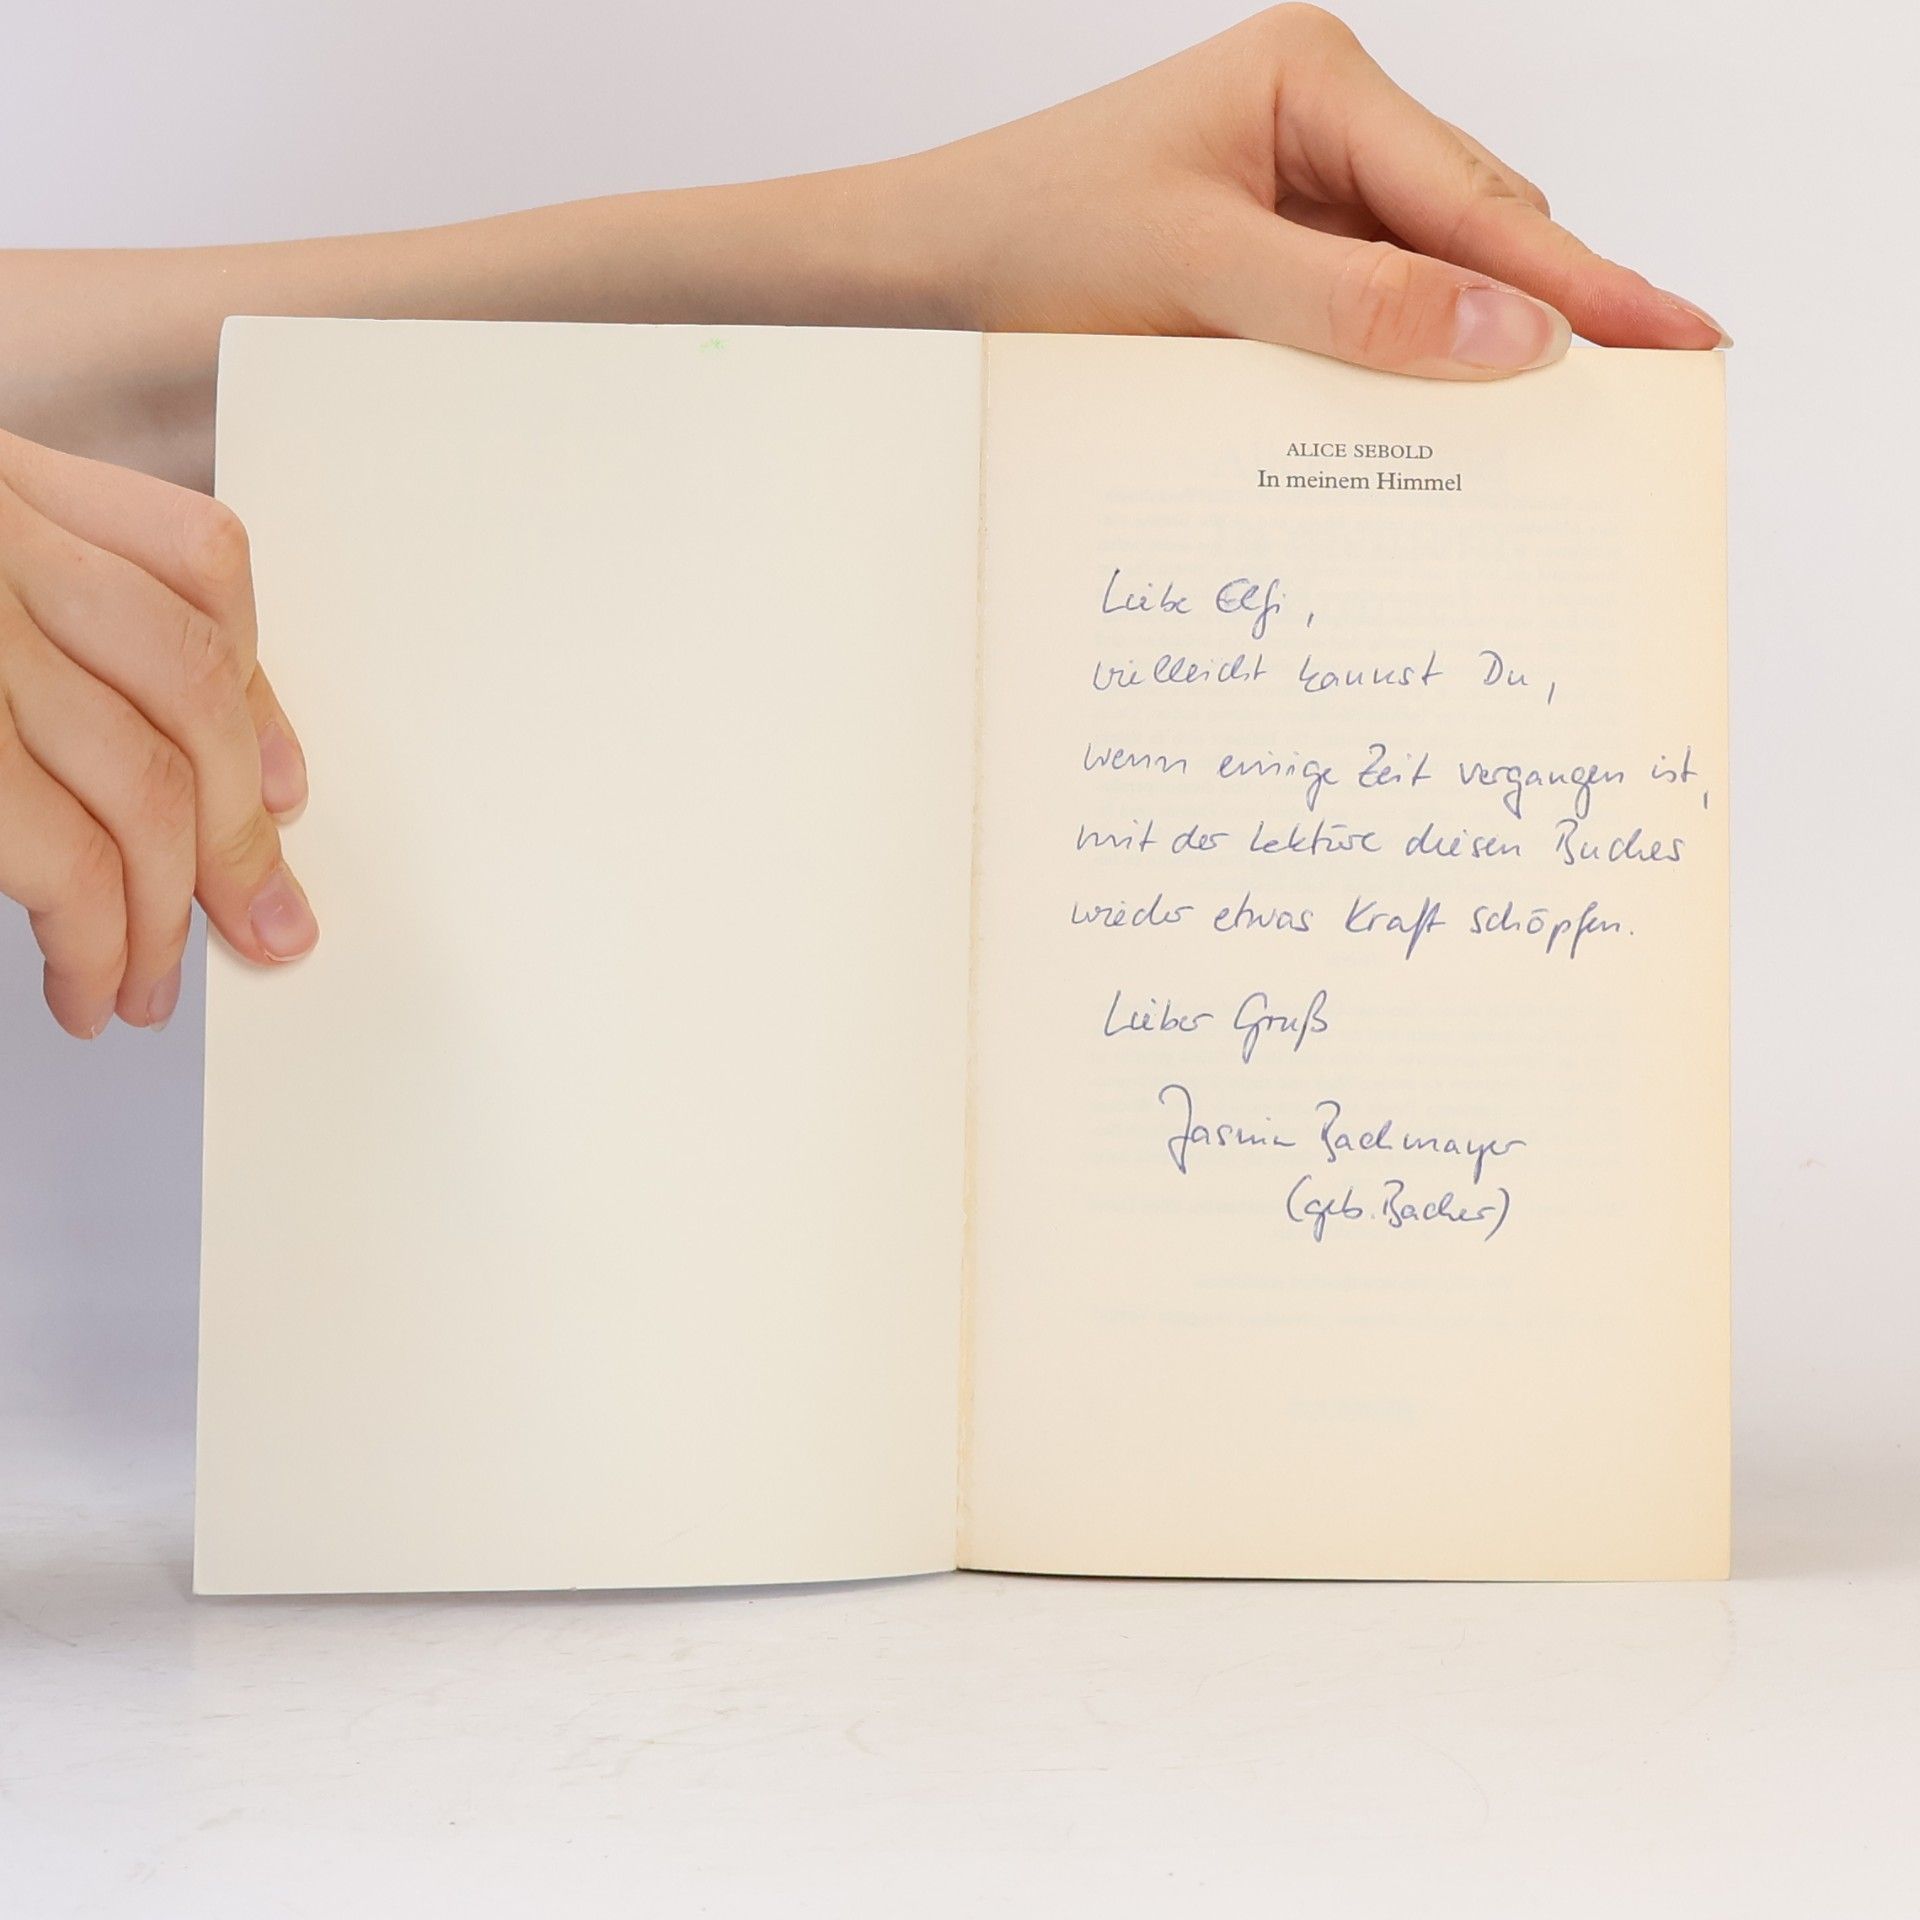 ALICE SEBOLD
In meinem Himmel
Liebe Elfi,
vielleicht kannst Du,
wenn einige Zeit vergangen ist,
mit der Lektüre diesen Buches
wieder etwas Kraft schöpfen.
Lieber Gruß
Jasmin Bachmayer
(geb. Bacher)